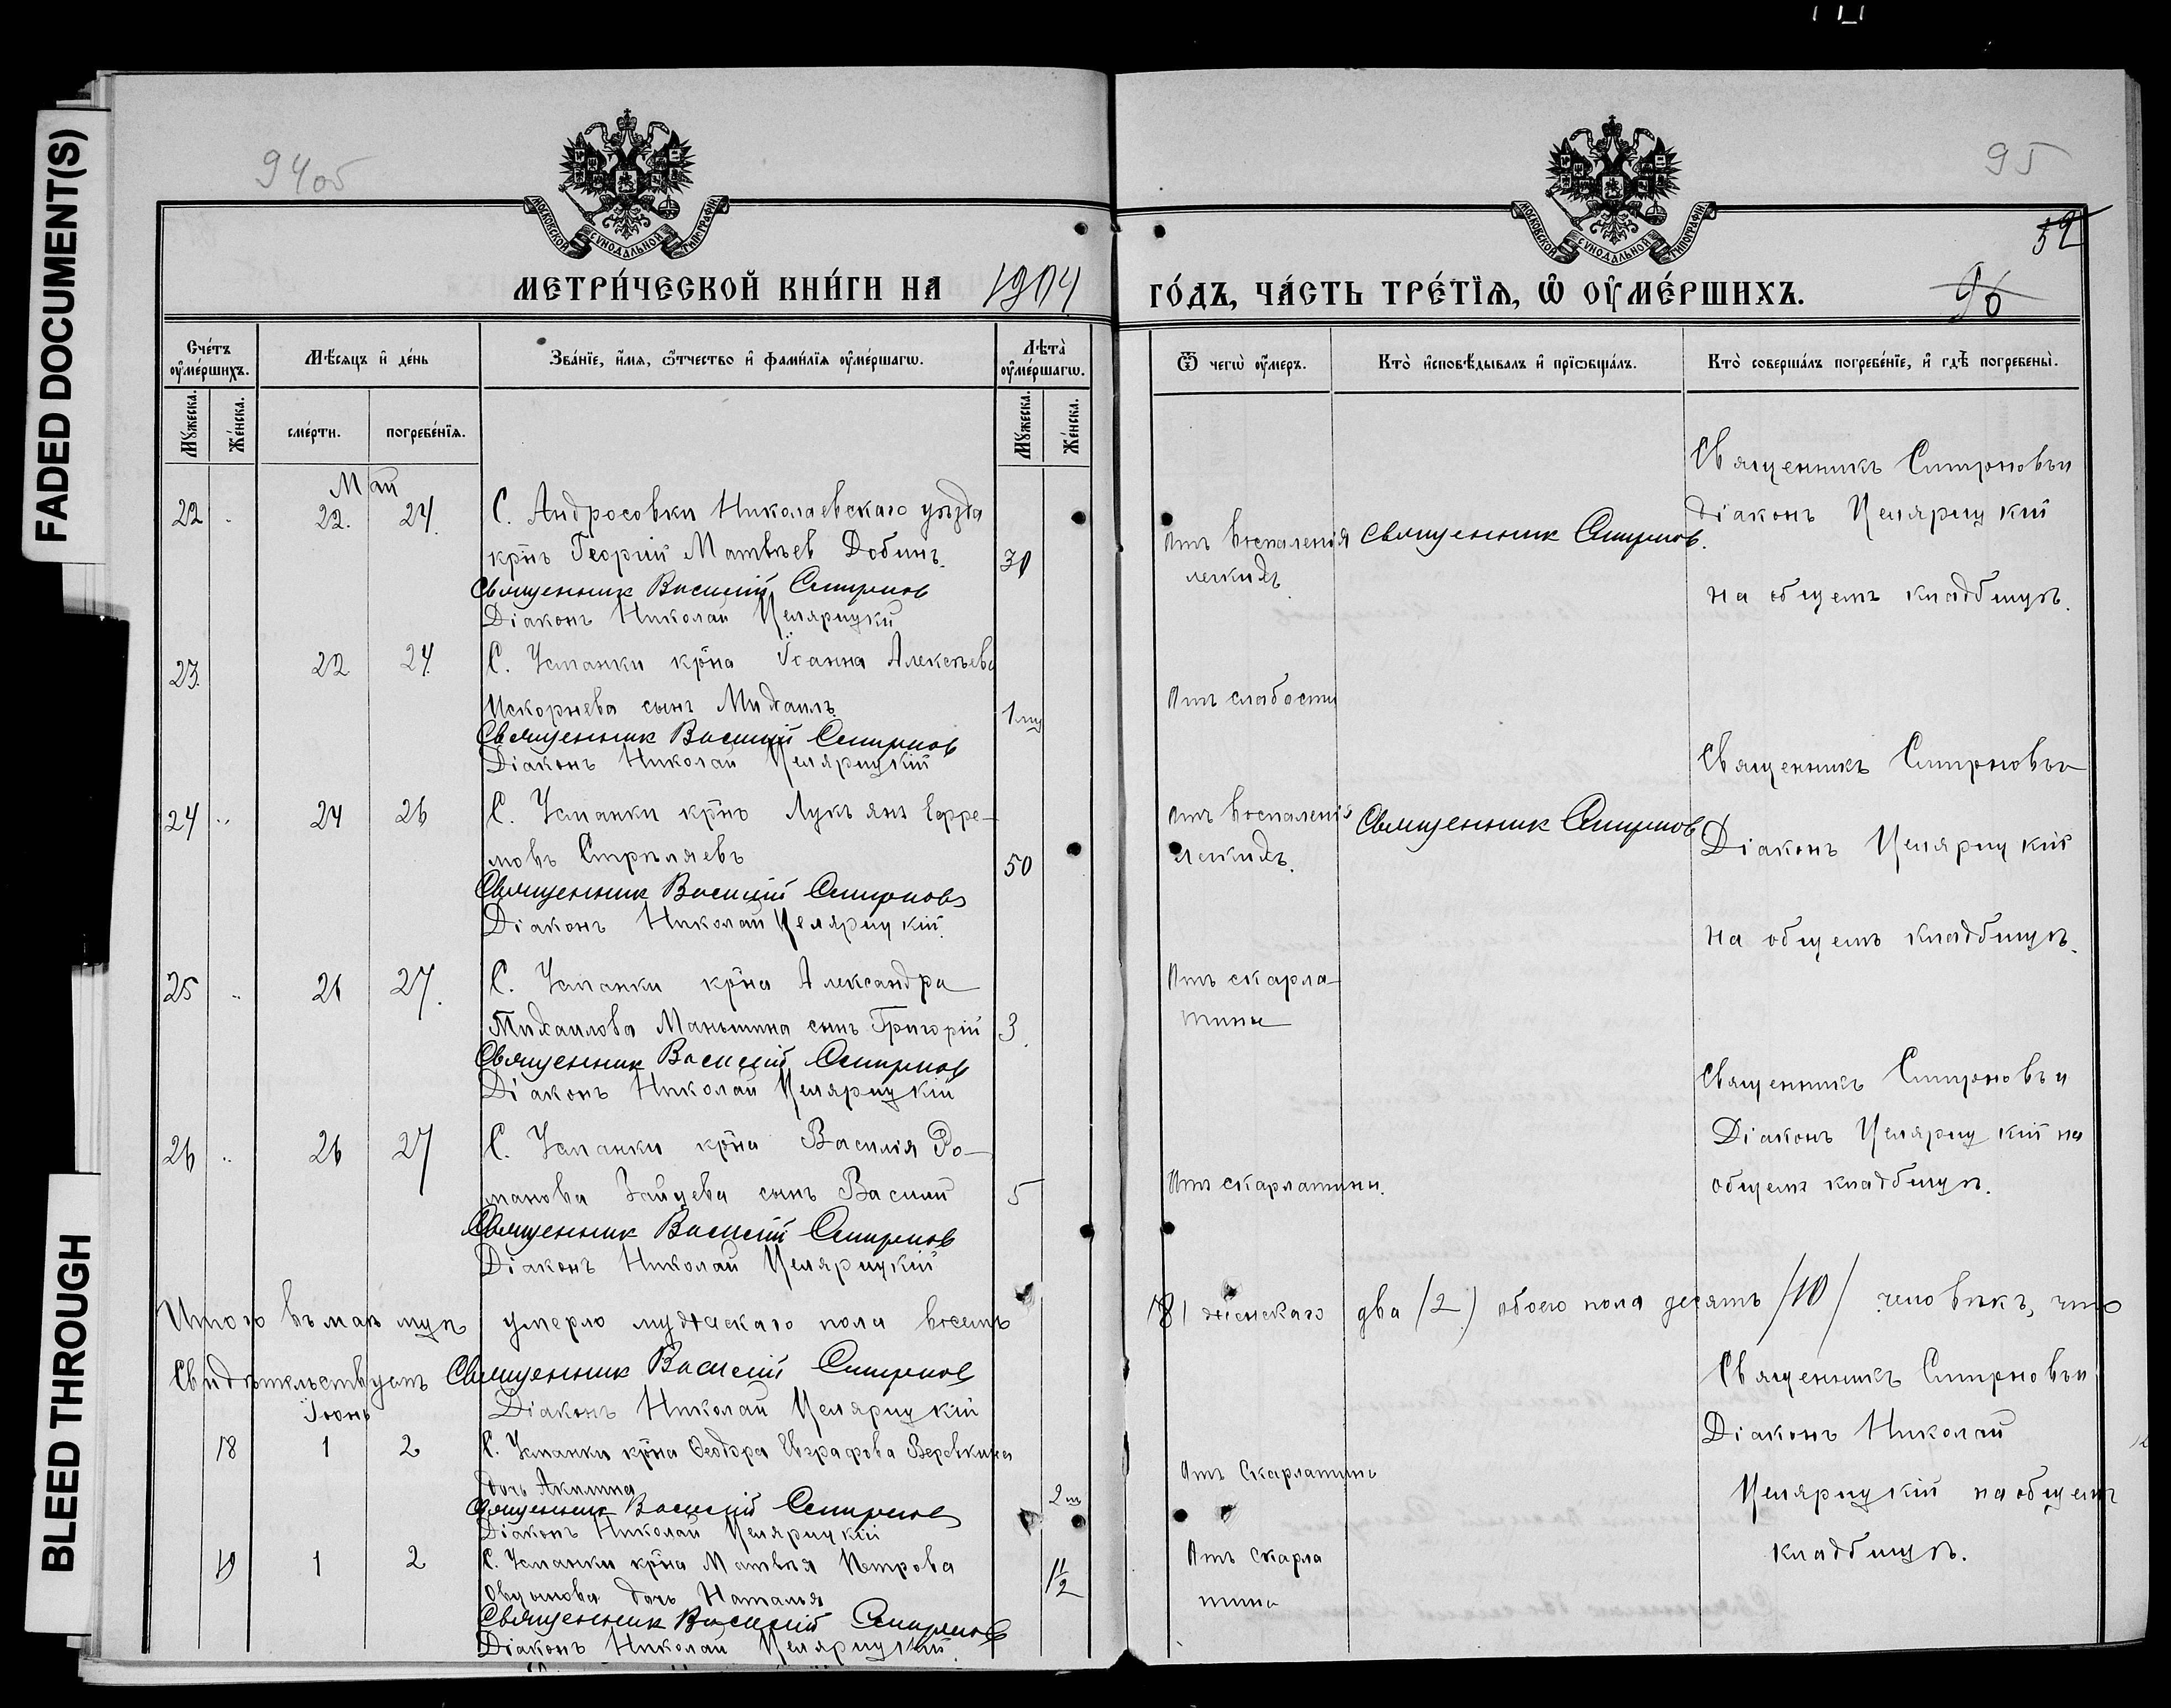 FADED DOCUMENT(S)
BLEED THROUGH
94об
95
52
96
МОСКОВСКОЙ СѴНОДАЛЬНОЙ ТИПОГРАФІИ
МОСКОВСКОЙ СѴНОДАЛЬНОЙ ТИПОГРАФІИ
МЕТРИ́ЧЕСКОЙ КНИ́ГИ НА 1904 ГО́ДЪ, ЧА́СТЬ ТРЕ́ТЇѦ, Ѽ ОУ҆МЕ́РШИХЪ.
Сче́тъ оу҆ме́ршихъ.
Мѣ́сяцъ и҆ де́нь
Зва́нїе, и҆́мя, ѻ҆́тчество и҆ фами́лїя оу҆ме́ршагѡ.
Лѣта̀ оу҆ме́ршагѡ.
Ѿ чегѡ̀ оу҆́меръ.
Кто̀ и҆сповѣ́дывалъ и҆ прїѡбща́лъ.
Кто̀ соверша́лъ погребе́нїе, и҆ гдѣ̀ погребены̀.
Му́жеска.
Же́нска.
сме́рти.
погребе́нїя.
Му́жеска.
Же́нска.
Май
22 22. 24. С. Андросовки Николаевскаго уѣзда
крнъ Георгій Матвѣев Добинъ. 30
Священник Василій Смирнов
Діаконъ Николай Целярицкій
Отъ воспаленія
легкихъ.
Священник Смирнов.
Священникъ Смирновъ и
Діаконъ Целярицкій
на общемъ кладбищѣ.
23. 22 24. С. Успанки крна Іоанна Алексѣева
Искорнева сынъ Михаилъ
Священник Василій Смирнов
Діаконъ Николай Целярицкій
Отъ слабости
24 24 26 С. Успанки крнъ Лукъянъ Ефре-
мовъ Стрѣляевъ 50
Священник Василій Смирновъ
Діаконъ Николай Целярицкій.
Отъ воспаленія
легкихъ.
Священник Смирнов
Священникъ Смирновъ и
Діаконъ Целярицкій
на общемъ кладбищѣ.
25 26 27. С. Успанки крна Александра
Михаилова Маньшина сынъ Григорій 3.
Священник Василій Смирнов
Діаконъ Николай Целярицкій
Отъ скарла-
тины
26 26 27 С. Успанки крна Василія Ро-
манова Зайцева сынъ Василій 5
Священник Василій Смирнов
Діаконъ Николай Целярицкій
Отъ скарлатины.
Священникъ Смирновъ и
Діаконъ Целярицкій на
общемъ кладбищѣ.
Итого въ маѣ мцѣ умерло мужескаго пола восемь /8/ женскаго два /2/ обоего пола десять /10/ человѣкъ, что
Свидѣтельствуютъ Священник Василій Смирнов
Діаконъ Николай Целярицкій
Іюнь
18 1 2 С. Успанки крна Ѳеодора Евграфова Веревкина
дочь Акилина
Священник Василій Смирнов
Діаконъ Николай Целярицкій
Отъ Скарлатины
Священникъ Смирновъ и
Діаконъ Николай
Целярицкій на общемъ
кладбищѣ.
19 1 2 С. Успанки крна Матвѣя Петрова
дочь Наталья 1 1/2
Священник Василій Смирнов
Діаконъ Николай Целярицкій.
Отъ Скарла
тины